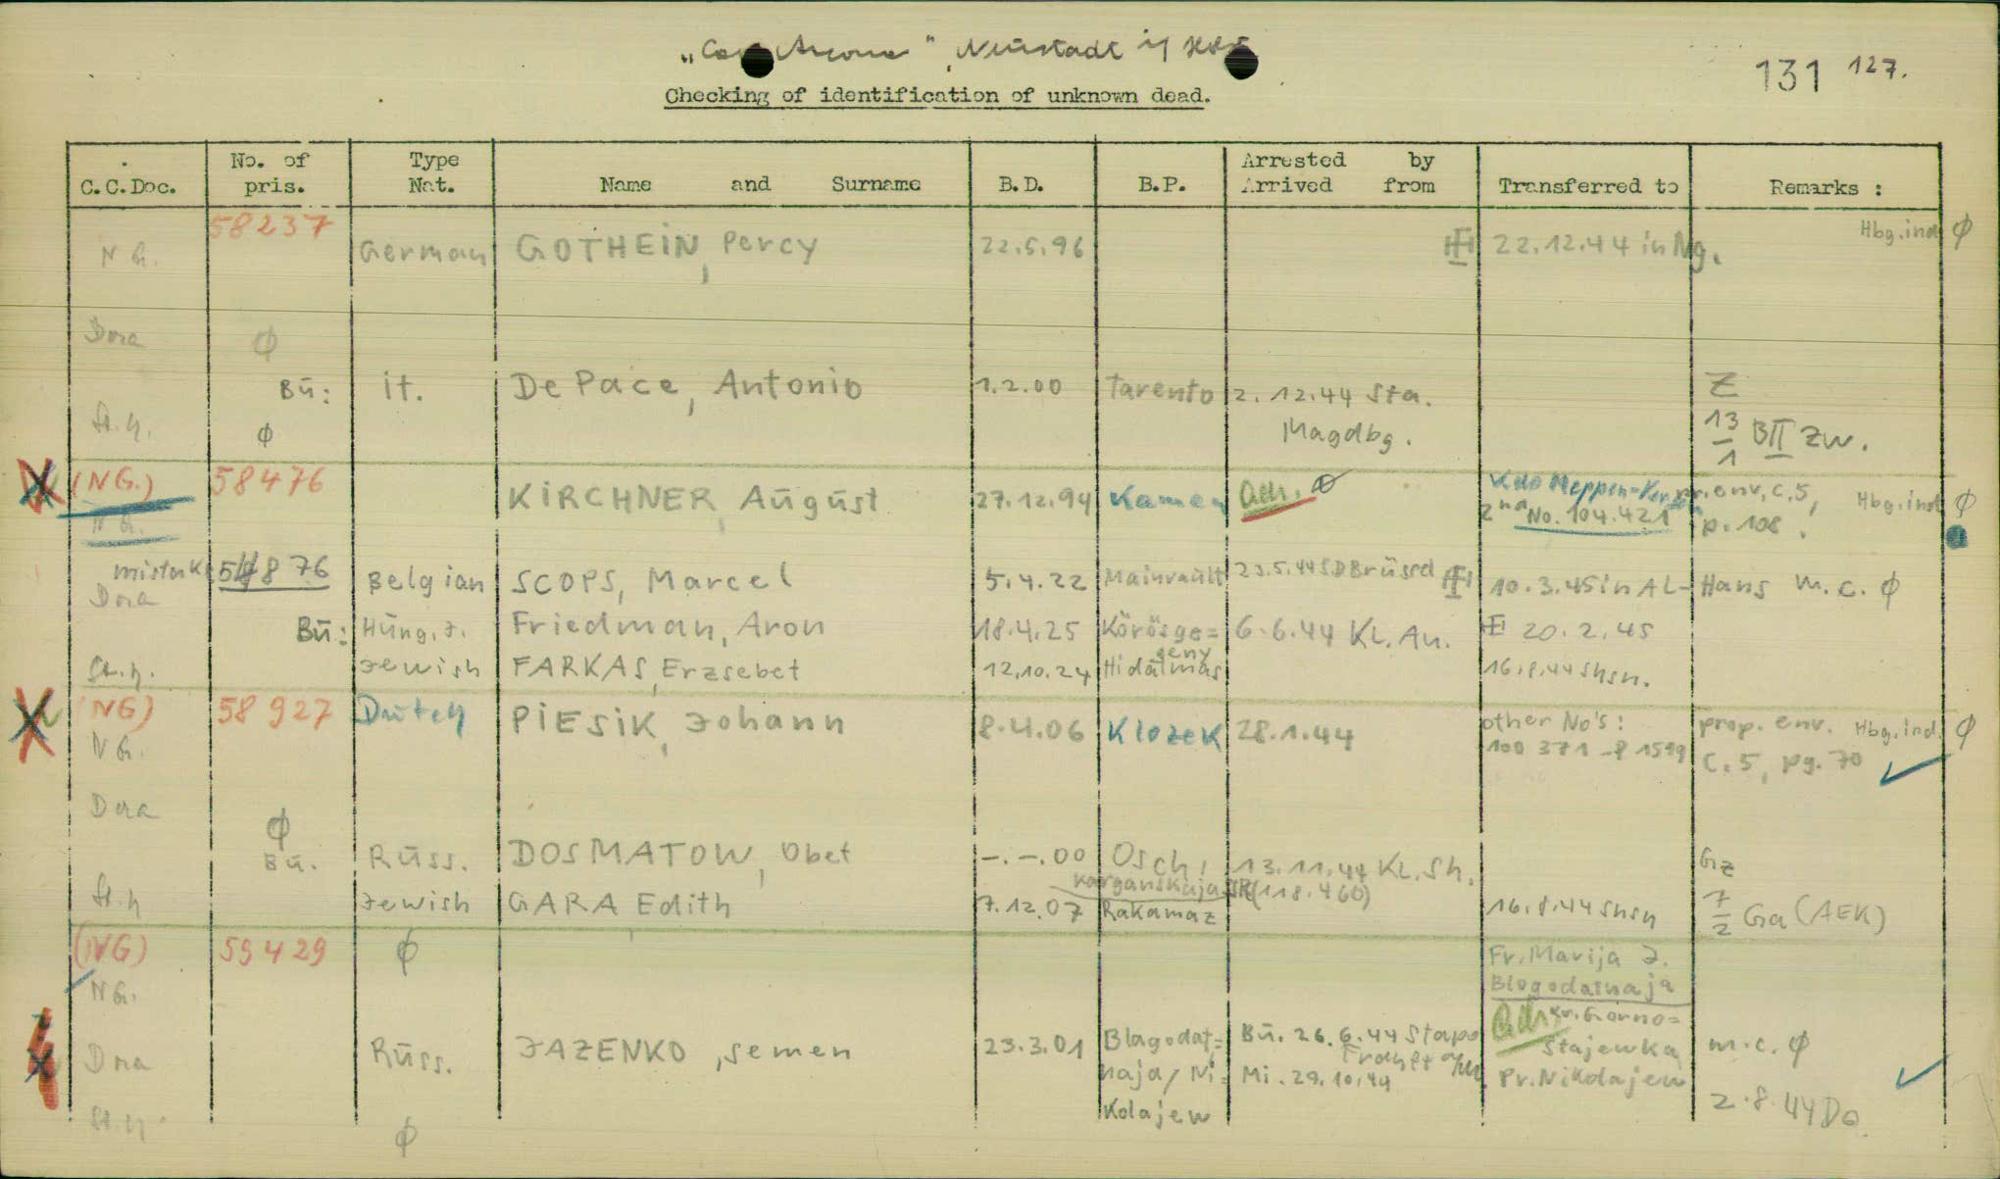 "Cap Arcona", Neustadt i/ Holst
131 127.
Checking of identification of unknown dead.
C.C.Doc. No. of pris. Type Nat. Name and Surname B.D. B.P. Arrested by Arrived from Transferred to Remarks :
58237 Hbg.ind ∅
NG. German GOTHEIN, Percy 22.5.96 22.12.44 in Ng.
Dora ∅
Bü: it. De Pace, Antonio 1.2.00 Tarento 2.12.44 Sta. Z
St.h. ∅ Magdbg. 13/1 BII Zw.
(NG.) 58476 KIRCHNER, August 27.12.94 Kamen adr. ∅ Kdo Meppen= pr. env, c.5, Hbg.ind ∅
NG. 2nd No. 104.421 p. 108.
mistake 54876 Belgian SCOPS, Marcel 5.4.22 Mainvault 23.5.44 SD Brüssel 10.3.45 in AL- Hans m.c. ∅
Dora
Bü: Hung. J. Friedman, Aron 18.4.25 Körösge= geny 6.6.44 KL. Au. 20.2.45
St.h. Jewish FARKAS, Erzsebet 12.10.24 Hidalmas 16.8.44 Shsn.
(NG) 58927 Dutch PIESIK, Johann 8.4.06 Klozek 28.1.44 other No's: prop. env. Hbg.ind. ∅
NG. 100 371 C.5, pg. 70
Dora ∅
Bü. Russ. DOSMATOW, Obet -.-.00 Osch, 13.11.44 KL. Sh. Gz
karganskaja SR (118.460)
St.h Jewish GARA Edith 7.12.07 Rakamaz 16.8.44 Shsn 7/2 Ga (AEK)
(NG) 59429 ∅ Fr. Marija J.
NG. Blogodatnaja
adr. Kr. Gorno=
Dora Russ. JAZENKO, Semen 23.3.01 Blagodat= Bü. 26.6.44 Stapo Stajewka m.c. ∅
naja, Ni= Mi. 29.10.44 Pr. Nikolajew
kolajew 2.8.44 Do
St.h. ∅